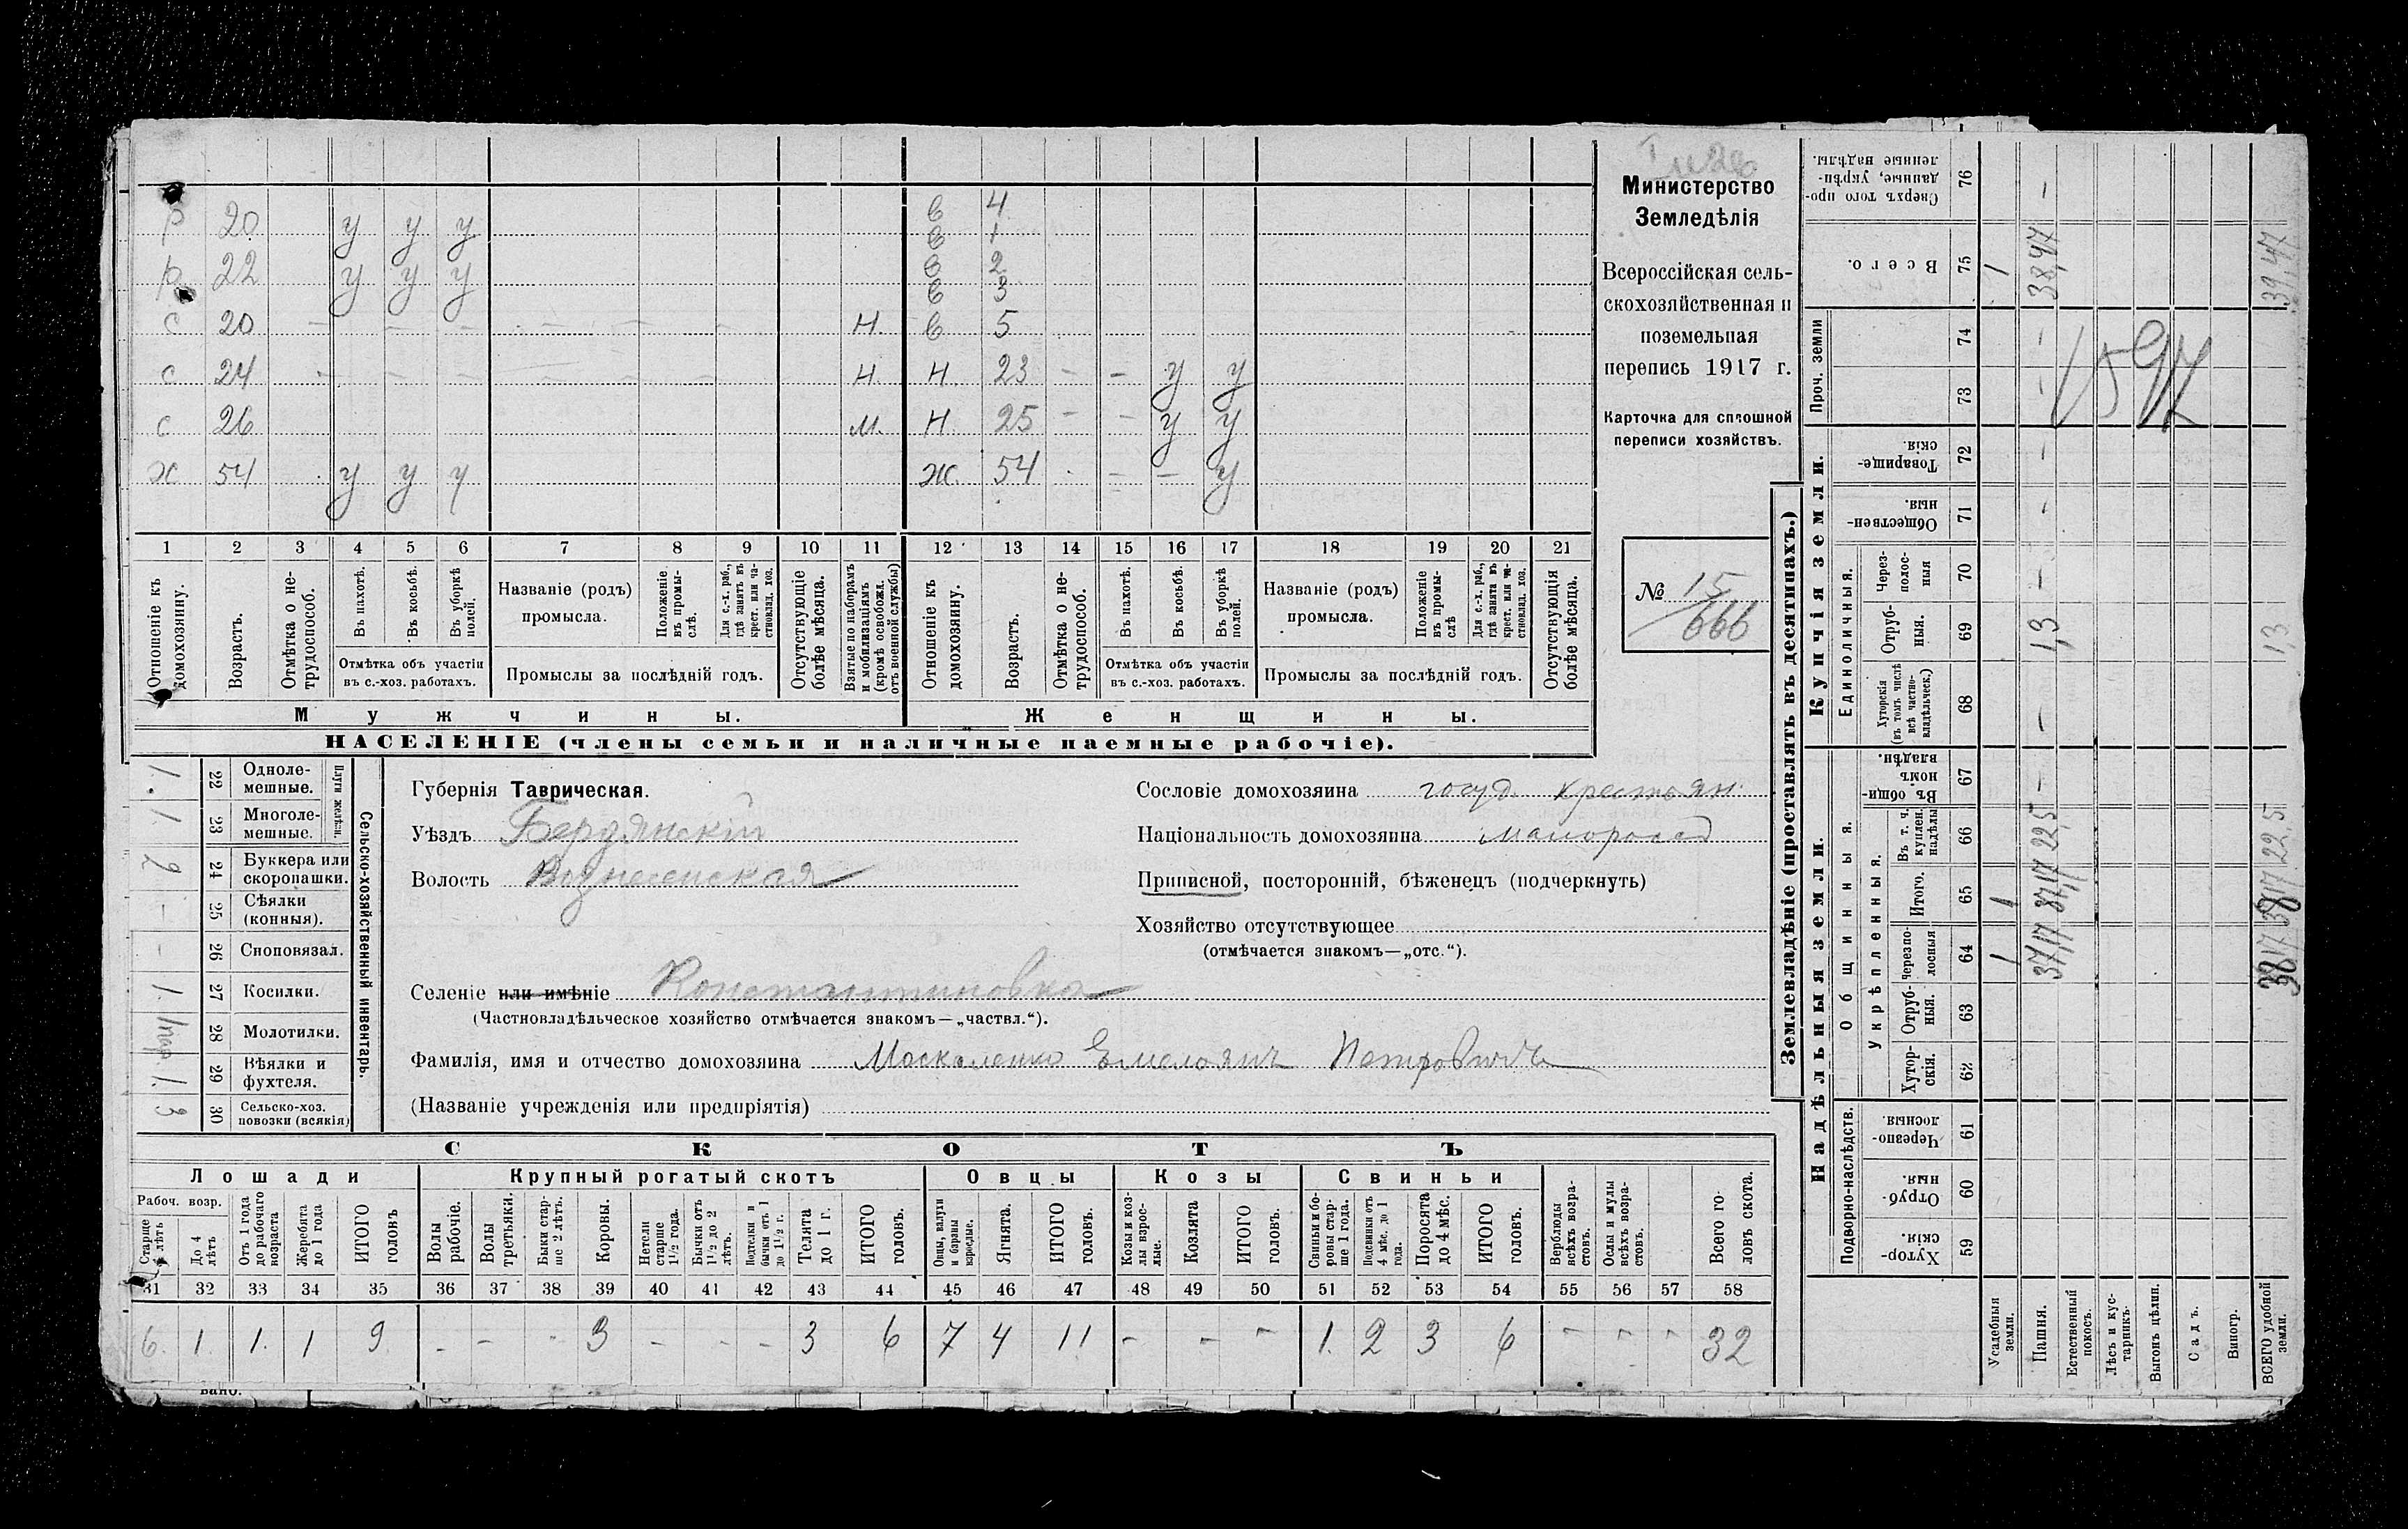 Министерство
Земледѣлія
Всероссійская сель-
скохозяйственная и
поземельная
перепись 1917 г.
Карточка для сплошной
переписи хозяйствъ.
№ 15
666
р 20 у у у
р 22 у у у
с 20 — — — — — — Н
с 24 — — — — — — Н
с 26 М.
х 54 у у у
в 4
в 1
в 2
в 3
в 5
Н 23 — — у у
Н 25 — — у у
ж 54 — — у
1 2 3 4 5 6 7 8 9 10 11 12 13 14 15 16 17 18 19 20 21
Отношеніе къ домохозяину.
Возрастъ.
Отмѣтка о не-трудоспособ.
Въ пахотѣ.
Въ косьбѣ.
Въ уборкѣ полей.
Отмѣтка объ участіи
въ с.-хоз. работахъ.
Названіе (родъ)
промысла.
Положеніе въ промы-слѣ.
Для с.-х. раб., гдѣ занятъ въ крест. или ча-стновлад. хоз.
Промыслы за послѣдній годъ.
Отсутствующіе болѣе мѣсяца.
Взятые по наборамъ и мобилизаціямъ (кромѣ освобожд. отъ военной службы)
Отношеніе къ домохозяину.
Возрастъ.
Отмѣтка о не-трудоспособ.
Въ пахотѣ.
Въ косьбѣ.
Въ уборкѣ полей.
Отмѣтка объ участіи
въ с.-хоз. работахъ.
Названіе (родъ)
промысла.
Положеніе въ промы-слѣ
Для с.-х. раб., гдѣ занята въ крест. или ча-стновлад. хоз.
Промыслы за послѣдній годъ.
Отсутствующія болѣе мѣсяца.
Мужчины.
Женщины.
НАСЕЛЕНІЕ (члены семьи и наличные наемные рабочіе).
Сельско-хозяйственный инвентарь.
Плуги желѣзн.
Одноле-мешные. 22 1.
Многоле-мешные. 23 1
Буккера или скоропашки. 24 2
Сѣялки (конныя). 25 —
Сноповязал. 26 —
Косилки. 27 1.
Молотилки. 28 1 пар
Вѣялки и фухтеля. 29 1.
Сельско-хоз. повозки (всякія) 30 3
Губернія Таврическая.
Уѣздъ Бердянскій
Волость Вознесенская
Сословіе домохозяина госуд. крестьян.
Національность домохозяина малоросс
Приписной, посторонній, бѣженецъ (подчеркнуть)
Хозяйство отсутствующее
(отмѣчается знакомъ—„отс.“).
Селеніе или имѣніе Константиновка
(Частновладѣльческое хозяйство отмѣчается знакомъ—„частвл.“).
Фамилія, имя и отчество домохозяина Москаленко Емельянъ Петровичъ
(Названіе учрежденія или предпріятія)
СКОТЪ
Лошади
Рабоч. возр.
Старше 4 лѣтъ
До 4 лѣтъ
Отъ 1 года до рабочаго возраста
Жеребята до 1 года
ИТОГО головъ
Крупный рогатый скотъ
Волы рабочіе.
Волы третьяки.
Быки стар-ше 2 лѣтъ.
Коровы.
Нетели старше 1½ года.
Бычки отъ 1½ до 2 лѣтъ.
Подтелки и бычки отъ 1 до 1½ г.
Телята до 1 г.
ИТОГО головъ.
Овцы
Овцы, валухи и бараны взрослые.
Ягнята.
ИТОГО головъ.
Козы
Козы и коз-лы взрос-лые.
Козлята
ИТОГО головъ.
Свиньи
Свиньи и бо-ровы стар-ше 1 года.
Подсвинки отъ 4 мѣс. до 1 года.
Поросята до 4 мѣс.
ИТОГО головъ.
Верблюды всѣхъ возра-стовъ.
Ослы и мулы всѣхъ возра-стовъ.
Всего го-ловъ скота.
31 32 33 34 35 36 37 38 39 40 41 42 43 44 45 46 47 48 49 50 51 52 53 54 55 56 57 58
6. 1. 1. 1 9 - - - 3 - - - 3 6 7 4 11 - - - 1. 2 3 6 - - - 32
Землевладѣніе (проставлять въ десятинахъ.)
Надѣльныя земли.
Подворно-наслѣдств.
Хутор-скія. 59
Отруб-ныя. 60
Черезпо-лосныя. 61
Общинныя.
Укрѣпленныя.
Хутор-скія. 62
Отруб-ныя. 63
Черезпо-лосныя 64
Итого. 65
Въ т. ч. куплен. надѣлы 66
Въ общин-номъ владѣн. 67
Купчія земли.
Единоличныя.
Хуторскія (въ томъ числѣ всѣ частно-владѣльческ.) 68
Отруб-ныя. 69
Через-полос-ныя 70
Обществен-ныя. 71
Товарище-скія. 72
Проч. земли
73
74
Всего. 75
Сверхъ того про-данные, укрѣп-ленные надѣлы. 76
Усадебныя земли. 1 1 1
Пашня. 37,17 37,17 22,5 — — 1,3 — - - - - 38,47 -
Естественный покосъ.
Лѣсъ и кус-тарникъ.
Выгонъ цѣлин.
Садъ.
Виногр.
ВСЕГО удобной земли. 38,17 38,17 22,5 1,3 39,47
1597
вано.